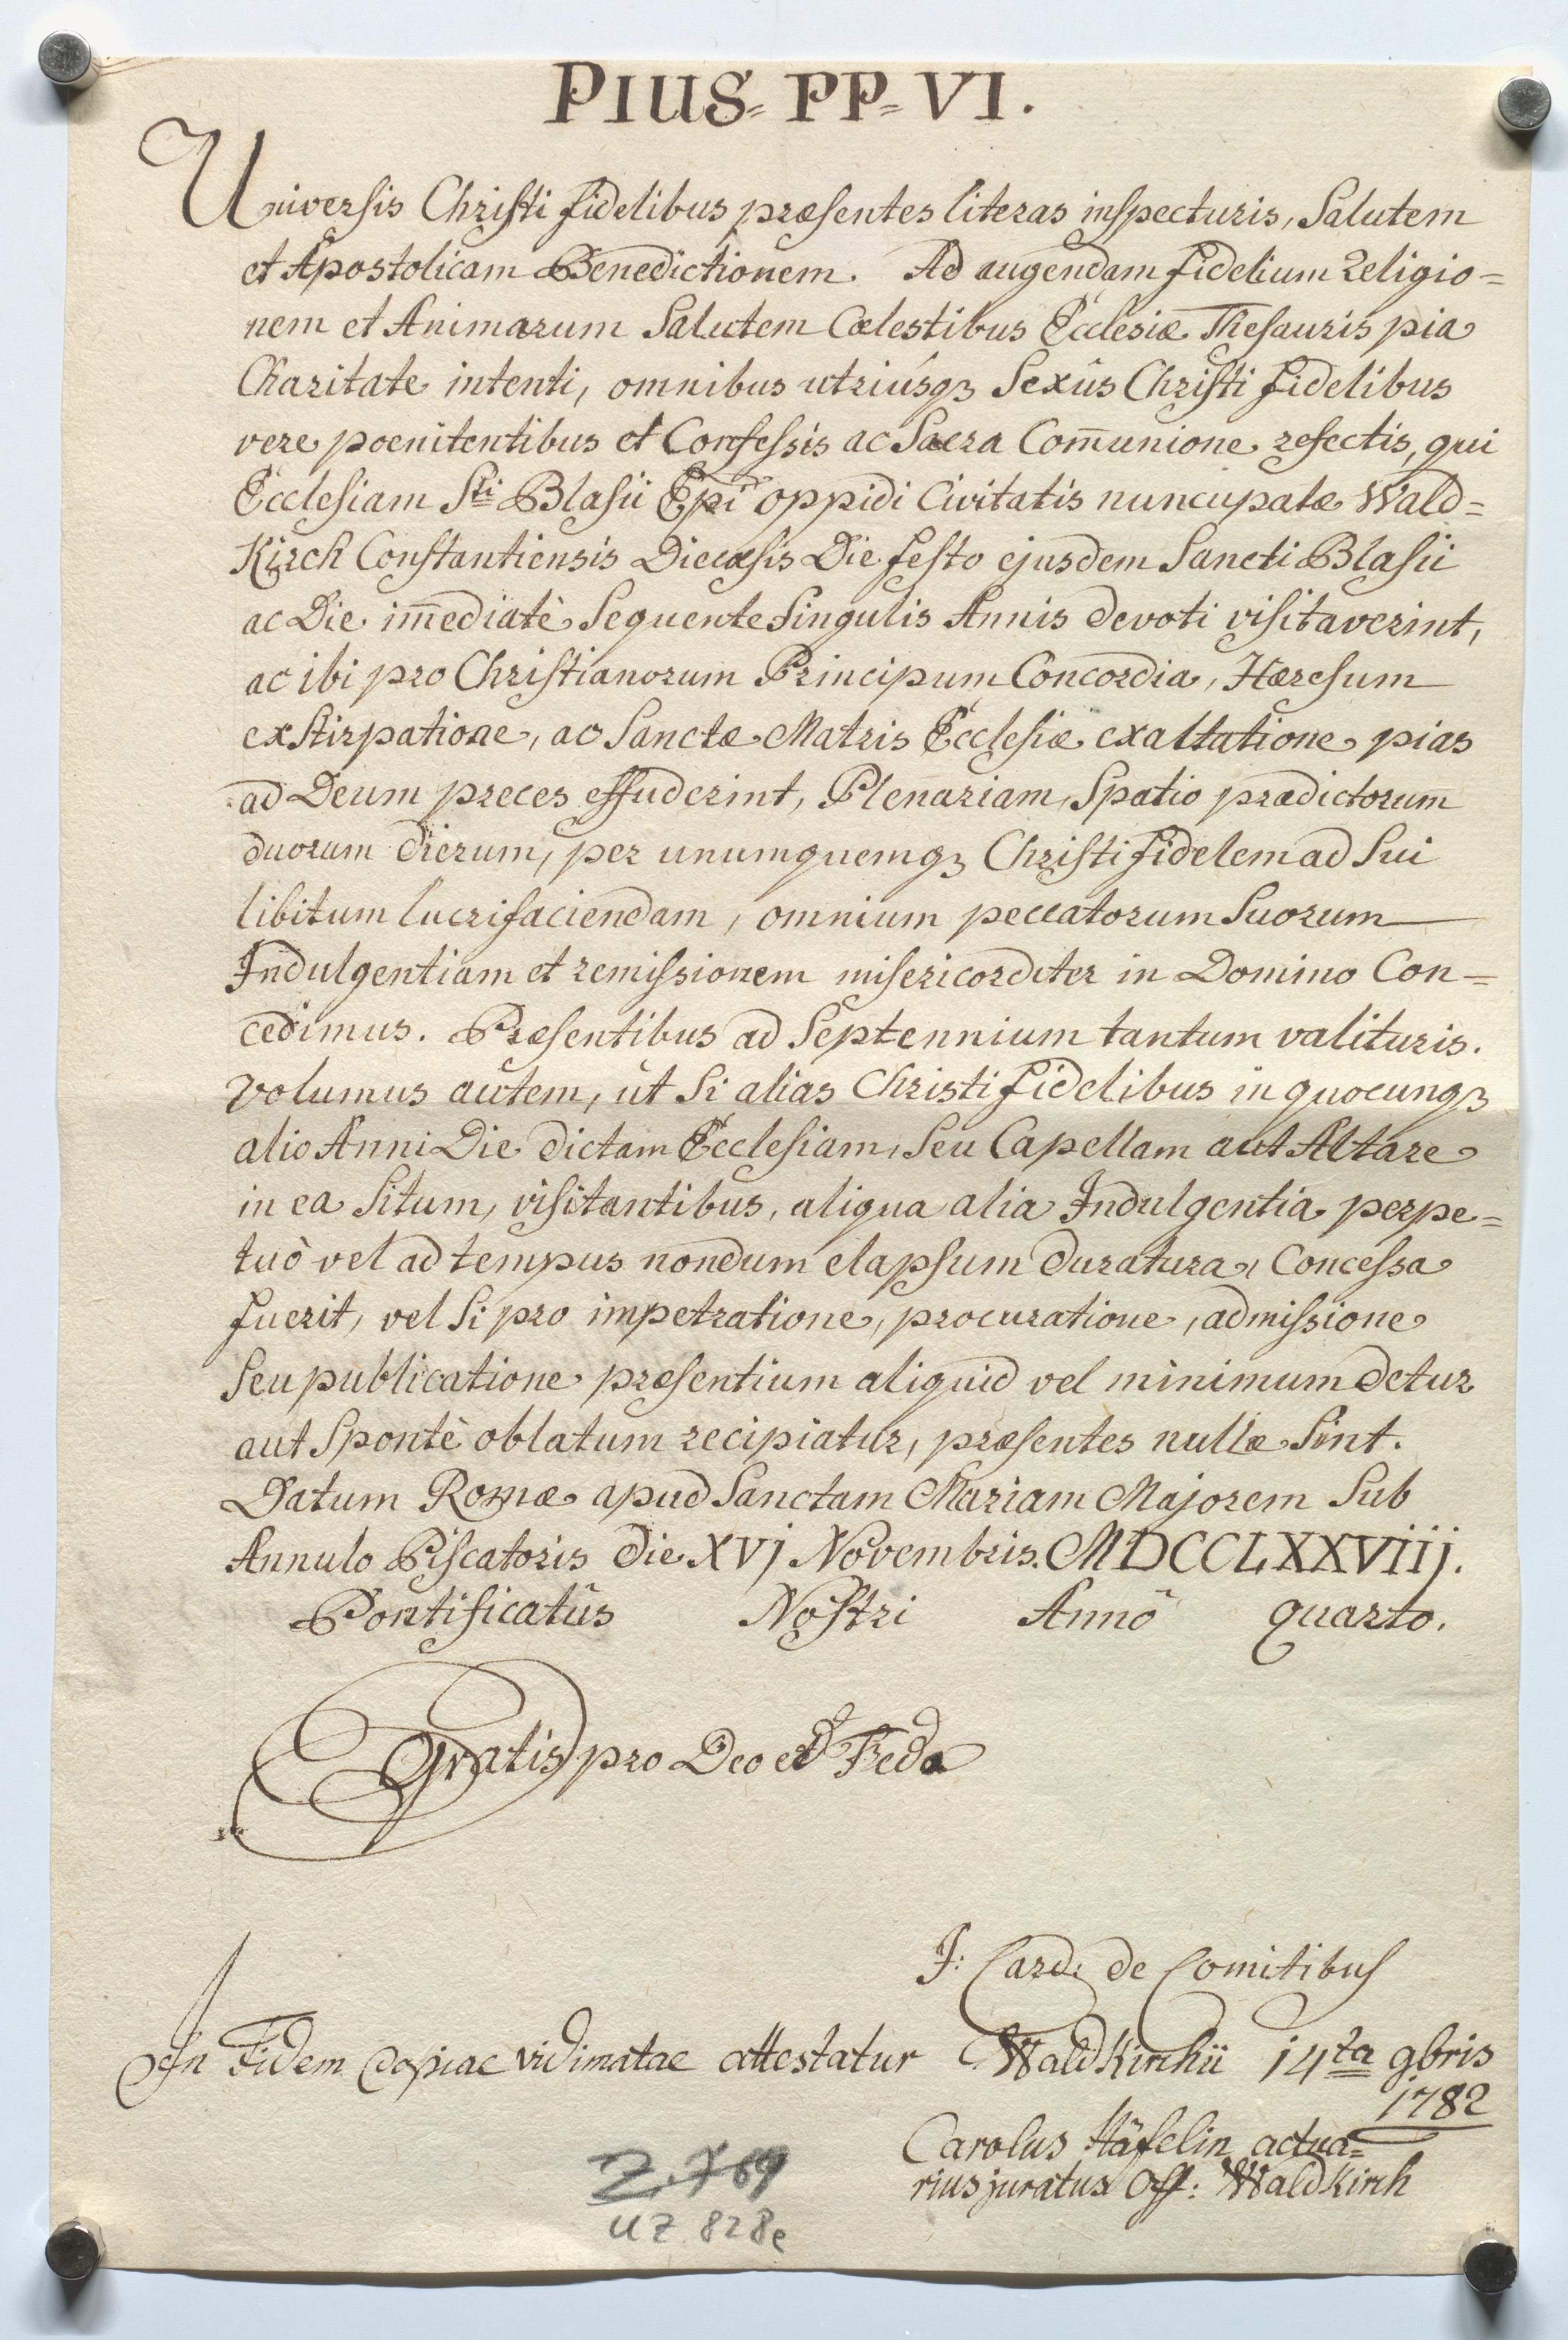 PIUS= PP= VI.
Universis Christi fidelibus præsentes literas inspecturis, Salutem
et Apostolicam Benedictionem. Ad augendam fidelium Religio=
nem et Animarum Salutem Cœlestibus Ecclesiæ Thesauris pia
Charitate intenti, omnibus utriúsqꝫ Sexûs Christi fidelibus
vere poenitentibus et Confessis ac Sacra Com̄unione refectis, qui
Ecclesiam Sti Blasii Epi oppidi Civitatis nuncupatæ Wald=
Kirch Constantiensis Diecæsis Die festo ejusdem Sancti Blasii
ac Die im̄ediatè Sequente Singulis Annis devoti visitaverint,
ac ibi pro Christianorum Principum Concordia, Hæresum
exstirpatione, ac Sanctæ Matris Ecclesiæ exaltatione pias
ad Deum preces effuderint, Plenariam, Spatio prædictorum
duorum dierum, per unumquemqꝫ Christi fidelem ad Sui
libitum lucrifaciendam, omnium peccatorum Suorum
Indulgentiam et remissionem misericorditer in Domino Con=
cedimus. Præsentibus ad Septennium tantum valituris.
Volumus autem, út Si alias Christi fidelibus in quocunqꝫ
alio Anni Die dictam Ecclesiam, Seu Capellam aut Altare
in ea Situm, visitantibus, aliqua alia Indulgentia perpe=
tuò vel ad tempus nondum elapsum duratura, Concessa
fuerit, vel Si pro impetratione, procuratione, admissione
Seu publicatione præsentium aliquid vel minimum detur
aut Spontè oblatum recipiatur, præsentes nullæ Sint.
Datum Romæ apud Sanctam Mariam Majorem Sub
Annulo Piscatoris die XVj Novembris. MDCCLXXViiij.
Pontificatûs Nostri Annô quarto.
Gratis pro Deo et
J: Card: de Comitibus
In Fidem Copiae vidimatae attestatur WaldKirchii 14ta 9bris
1782
Carolus Häfelin actua=
rius juratus Off: WaldKirch
Z. 769
UZ 828e